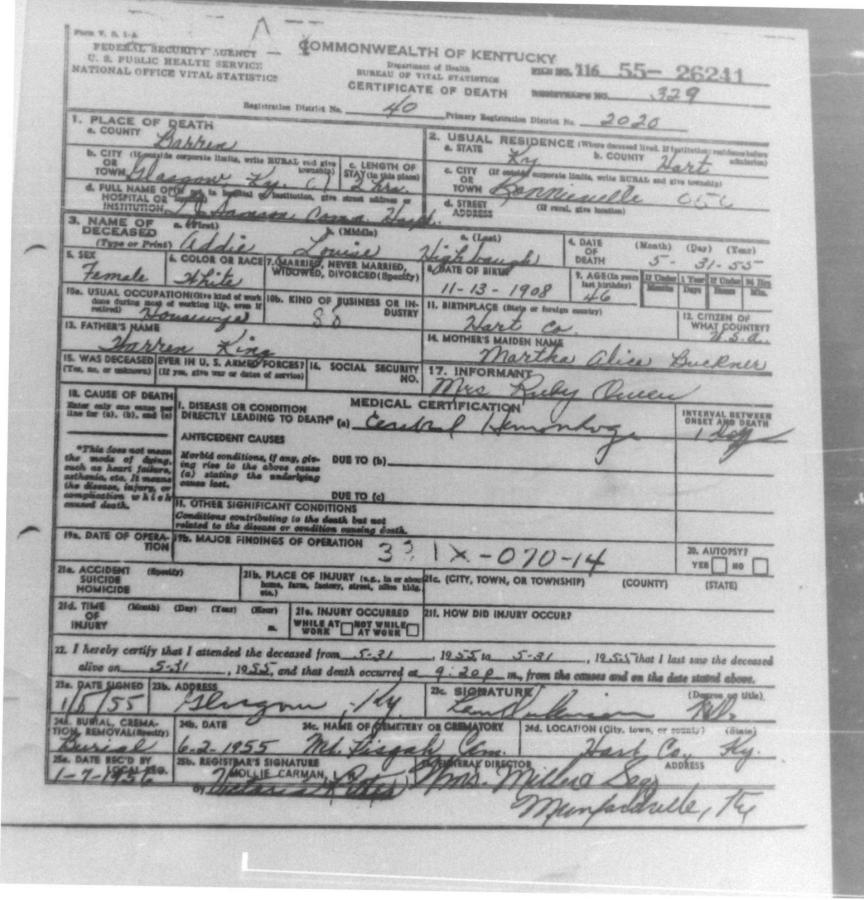 Form V. S. 1-A
FEDERAL SECURITY AGENCY
U. S. PUBLIC HEALTH SERVICE
NATIONAL OFFICE VITAL STATISTICS
COMMONWEALTH OF KENTUCKY
Department of Health
BUREAU OF VITAL STATISTICS
CERTIFICATE OF DEATH
FILE NO. 116 55- 26241
REGISTRAR'S NO. 329
Registration District No. 40 Primary Registration District No. 2020
1. PLACE OF DEATH
a. COUNTY Barren
b. CITY (If outside corporate limits, write RURAL and give township) OR TOWN Glasgow Ky.
c. LENGTH OF STAY (in this place) 2 hrs.
d. FULL NAME OF (If not in hospital or institution, give street address or location) HOSPITAL OR INSTITUTION T. J. Samson Comm. Hosp.
2. USUAL RESIDENCE (Where deceased lived. If institution: residence before admission)
a. STATE Ky b. COUNTY Hart
c. CITY (If outside corporate limits, write RURAL and give township) OR TOWN Bonnieville
d. STREET ADDRESS (If rural, give location)
3. NAME OF DECEASED (Type or Print) a. (First) b. (Middle) c. (Last)
Addie Louise Highbaugh
4. DATE OF DEATH (Month) (Day) (Year)
5-31-55
5. SEX Female
6. COLOR OR RACE White
7. MARRIED, NEVER MARRIED, WIDOWED, DIVORCED (Specify)
8. DATE OF BIRTH 11-13-1908
9. AGE (In years last birthday) 46
If Under 1 Year Months Days
If Under 24 Hrs Hours Min.
10a. USUAL OCCUPATION (Give kind of work done during most of working life, even if retired) Housewife
10b. KIND OF BUSINESS OR INDUSTRY
11. BIRTHPLACE (State or foreign country) Hart Co.
12. CITIZEN OF WHAT COUNTRY? U.S.A.
13. FATHER'S NAME Warren King
14. MOTHER'S MAIDEN NAME Martha Alice Buckner
15. WAS DECEASED EVER IN U. S. ARMED FORCES?
(Yes, no, or unknown) (If yes, give war or dates of service)
16. SOCIAL SECURITY NO.
17. INFORMANT Mrs Ruby Owen
18. CAUSE OF DEATH
Enter only one cause per line for (a), (b), and (c)
*This does not mean the mode of dying, such as heart failure, asthenia, etc. It means the disease, injury, or complication which caused death.
MEDICAL CERTIFICATION
INTERVAL BETWEEN ONSET AND DEATH
I. DISEASE OR CONDITION DIRECTLY LEADING TO DEATH* (a) Cerebral Hemorrhage 1 Day
ANTECEDENT CAUSES
Morbid conditions, if any, giving rise to the above cause (a) stating the underlying cause last.
DUE TO (b)
DUE TO (c)
II. OTHER SIGNIFICANT CONDITIONS
Conditions contributing to the death but not related to the disease or condition causing death.
19a. DATE OF OPERATION
19b. MAJOR FINDINGS OF OPERATION
331X-070-14
20. AUTOPSY?
YES NO
21a. ACCIDENT (Specify) SUICIDE HOMICIDE
21b. PLACE OF INJURY (e.g., in or about home, farm, factory, street, office bldg. etc.)
21c. (CITY, TOWN, OR TOWNSHIP) (COUNTY) (STATE)
21d. TIME OF INJURY (Month) (Day) (Year) (Hour) m.
21e. INJURY OCCURRED WHILE AT WORK NOT WHILE AT WORK
21f. HOW DID INJURY OCCUR?
22. I hereby certify that I attended the deceased from 5-31, 1955 to 5-31, 1955 that I last saw the deceased
alive on 5-31, 1955, and that death occurred at 9:20 p m., from the causes and on the date stated above.
23a. DATE SIGNED 1/5/55
23b. ADDRESS Glasgow, Ky.
23c. SIGNATURE (Degree or title)
24a. BURIAL, CREMATION, REMOVAL (Specify) Burial
24b. DATE 6-2-1955
24c. NAME OF CEMETERY OR CREMATORY Mt. Pisgah Cem.
24d. LOCATION (City, town, or county) (State) Hart Co. Ky.
25a. DATE REC'D BY LOCAL REG. 1-7-1956
25b. REGISTRAR'S SIGNATURE MOLLIE CARMAN,
By Victoria
FUNERAL DIRECTOR ADDRESS
Munfordville, Ky